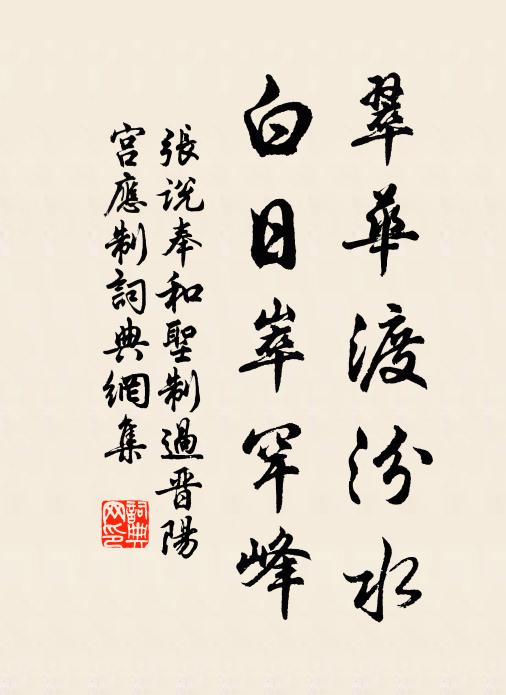 翠華渡汾水
白日崒罕峰
張説奉和聖制過晋陽
宮應制詞典網集
詞典
网印